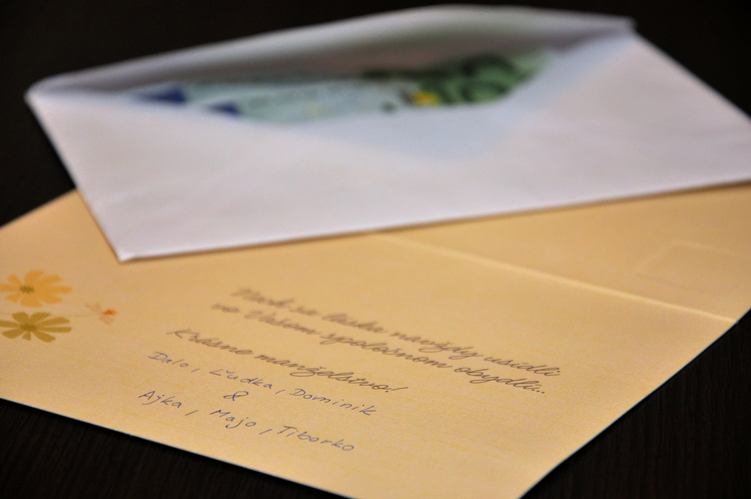 Nech sa láska navždy usídli
vo Vašom spoločnom obydlí..
Krásne manželstvo!
Dalo, Ľudka, Dominik
&
Ajka, Majo, Tiborko